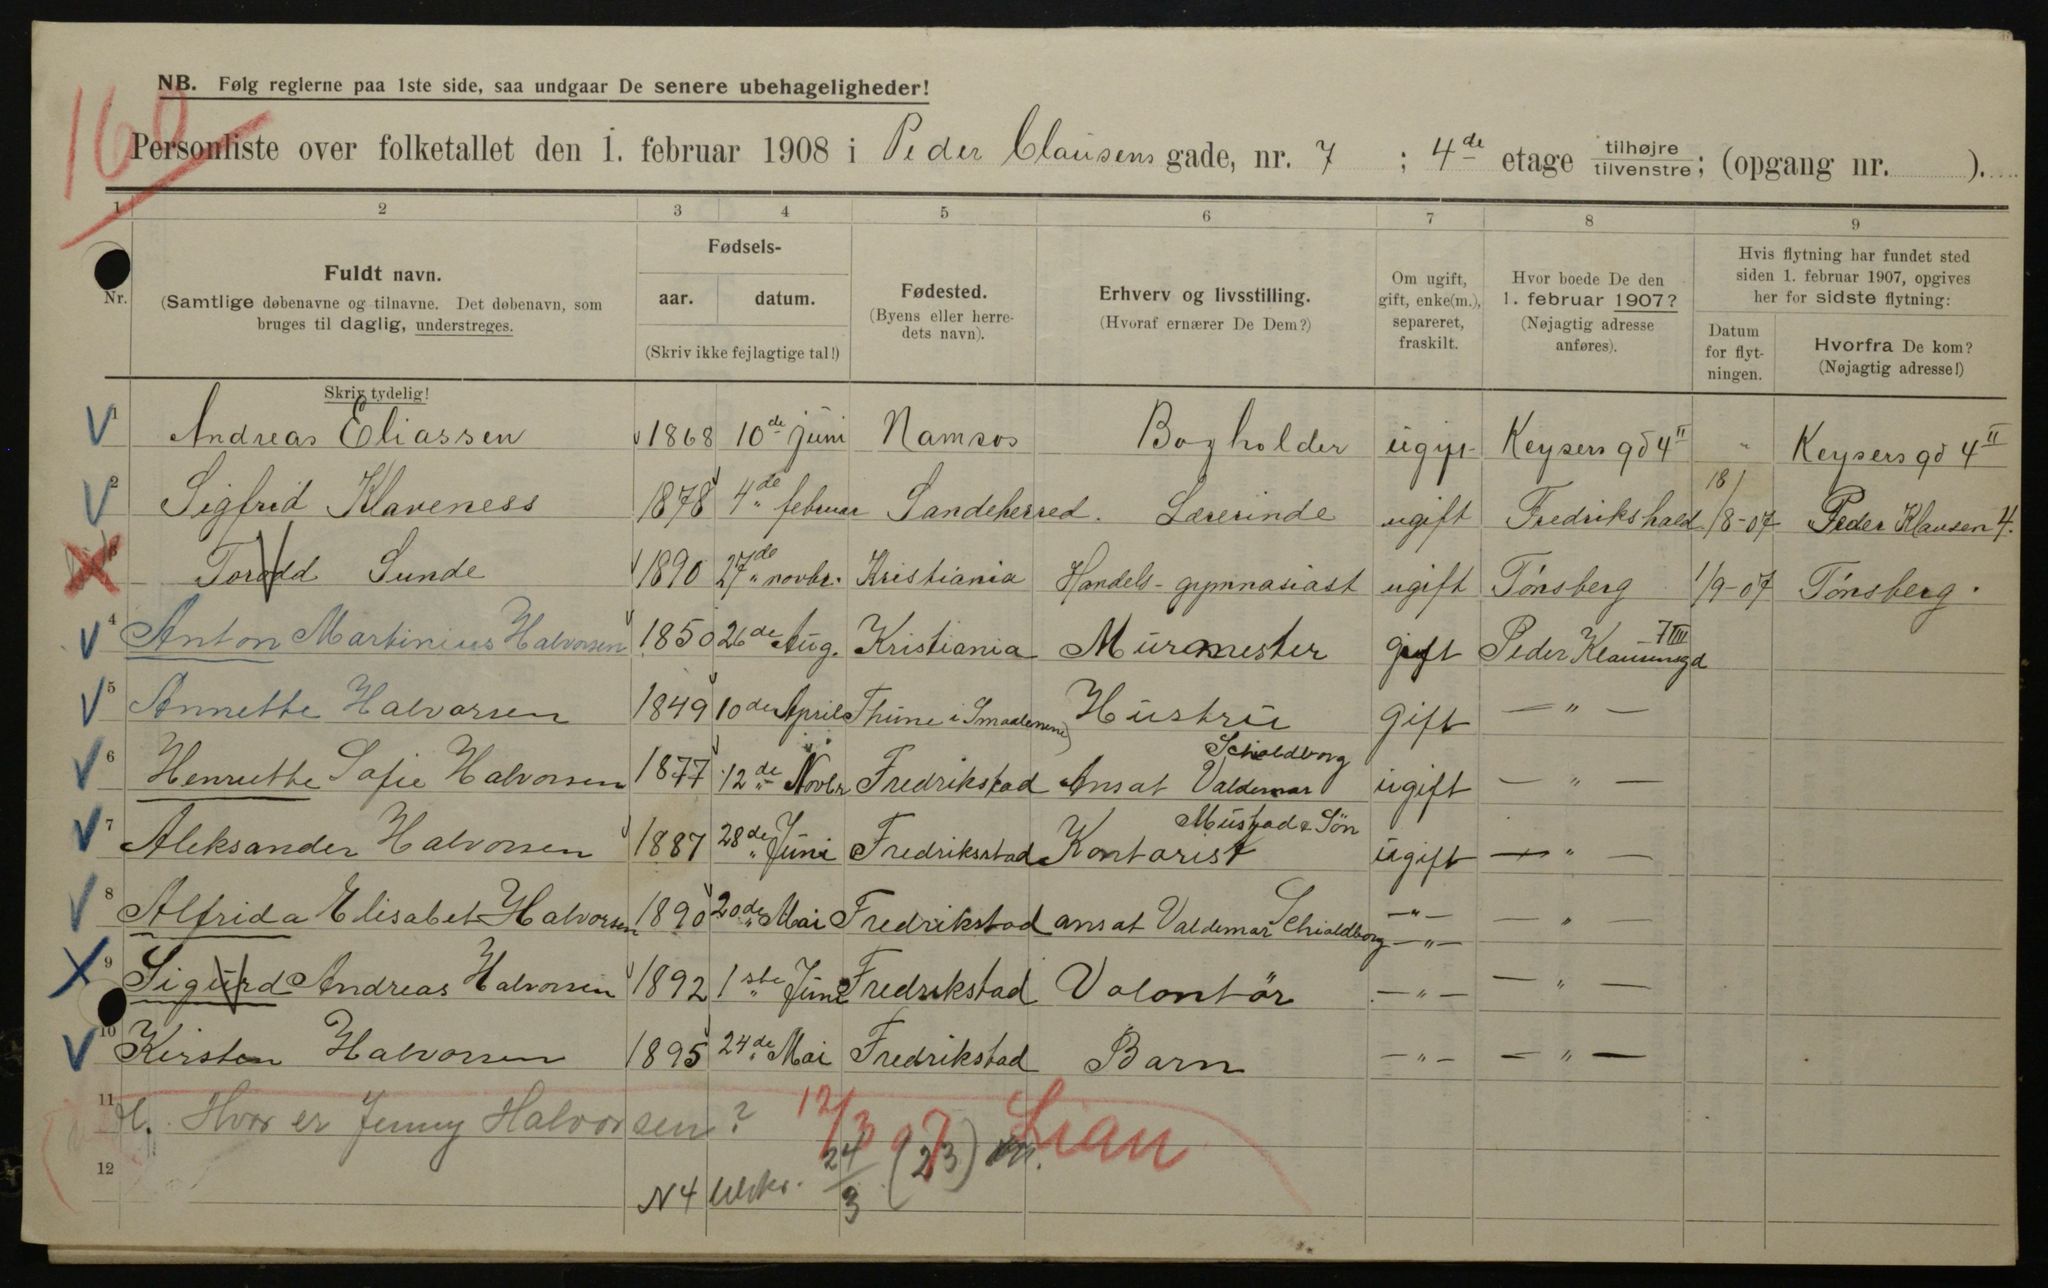 160
NB. Følg reglerne paa 1ste side, saa undgaar De senere ubehageligheder!
Personliste over folketallet den 1. februar 1908 i Peder Clausens gade, nr. 7 ; 4de etage tilhøjre/tilvenstre; (opgang nr. ).
1 2 3 4 5 6 7 8 9
Nr. Fuldt navn. (Samtlige døbenavne og tilnavne. Det døbenavn, som bruges til daglig, understreges.
Fødsels- aar. datum. (Skriv ikke fejlagtige tal!)
Fødested. (Byens eller herredets navn).
Erhverv og livsstilling. (Hvoraf ernærer De Dem?)
Om ugift, gift, enke(m.), separeret, fraskilt.
Hvor boede De den 1. februar 1907? (Nøjagtig adresse anføres).
Hvis flytning har fundet sted siden 1. februar 1907, opgives her for sidste flytning:
Datum for flytningen. Hvorfra De kom? (Nøjagtig adresse!)
Skriv tydelig!
1 Andreas Eliassen 1868 10de juni Namsos Bogholder ugift Keysers gd 4 II " Keysers gd 4 II
2 Sigfrid Klaveness 1878 4de februar Sandeherred. Lærerinde ugift Fredrikshald 18/8-07 Peder Klausen 4.
3 Torodd Sunde 1890 27de novbr. Kristiania Handels-gymnasiast ugift Tönsberg 1/9-07 Tönsberg.
4 Anton Martinius Halvorsen 1850 26de Aug. Kristiania Murmester gift Peder Klausensgd 7 III
5 Annette Halvorsen 1849 10de April Thune i Smaalenene Hustru gift — " —
6 Henriette Sofie Halvorsen 1877 12de Novbr Fredrikstad Ansat Valdemar Schioldborg ugift — " —
7 Aleksander Halvorsen 1887 28de Juni Fredriksstad Kontorist Mustad & Sön ugift — " —
8 Alfrida Elisabet Halvorsen 1890 20de Mai Fredrikstad ansat Valdemar Schioldborg — " — — " —
9 Sigurd Andreas Halvorsen 1892 1ste Juni Fredrikstad Volontör — " — — " —
10 Kirsten Halvorsen 1895 24de Mai Fredrikstad Barn — " — — " —
11 Hvor er Jenny Halvorsen? 12/3 07 Lian
12 N4 24/3 (23)